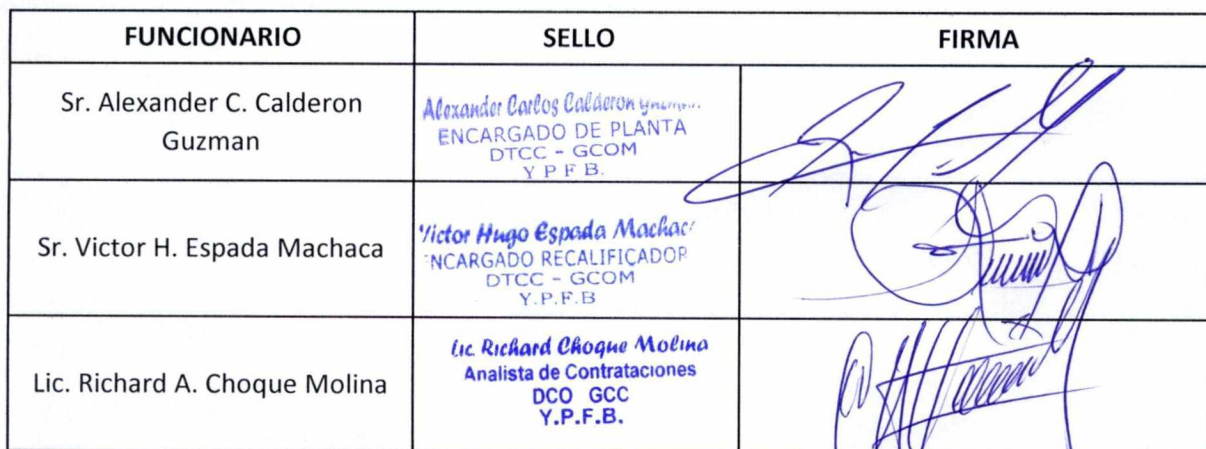 FUNCIONARIO SELLO FIRMA
Sr. Alexander C. Calderon
Guzman
Alexander Carlos Calderon
ENCARGADO DE PLANTA
DTCC - GCOM
Y P F B.
Sr. Victor H. Espada Machaca
Victor Hugo Espada Machac
NCARGADO RECALIFICADOR
DTCC - GCOM
Y.P.F.B
Lic. Richard A. Choque Molina
Lic. Richard Choque Molina
Analista de Contrataciones
DCO GCC
Y.P.F.B.